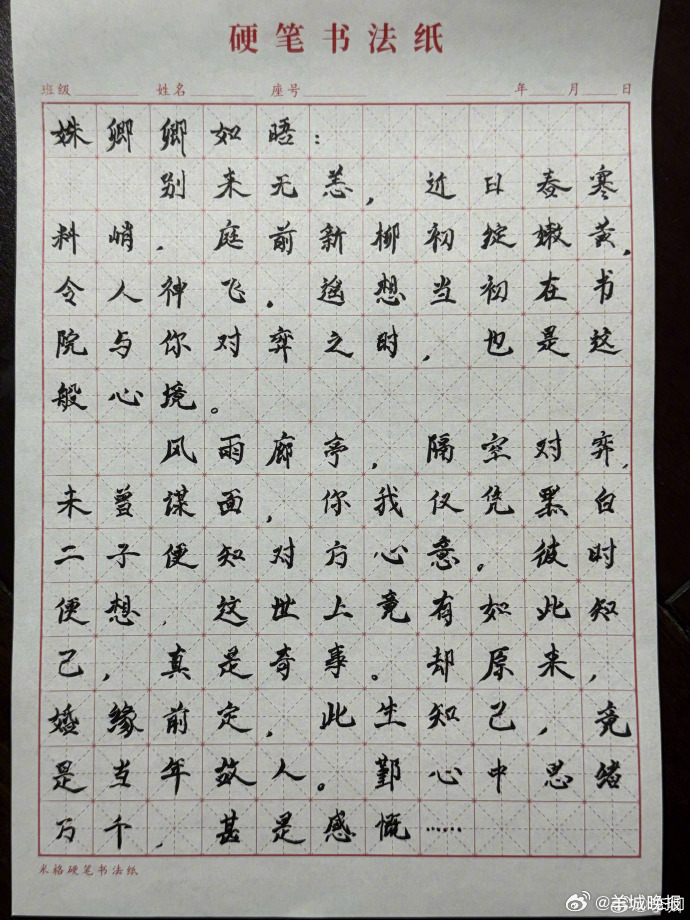 硬笔书法纸
班级 姓名 座号 年 月 日
姝卿卿如晤：
别来无恙，近日春寒
料峭，庭前新柳初绽嫩黄，
令人神飞。遥想当初在书
院与你对弈之时，也是这
般心境。
风雨廊亭，隔空对弈，
未曾谋面，你我仅凭黑白
二子便知对方心意。彼时
便想，这世上竟有如此知
己，真是奇事。却原来，
婚缘前定，此生知己，竟
是当年故人。鄞心中思绪
万千，甚是感慨……
米格硬笔书法纸
羊城晚报